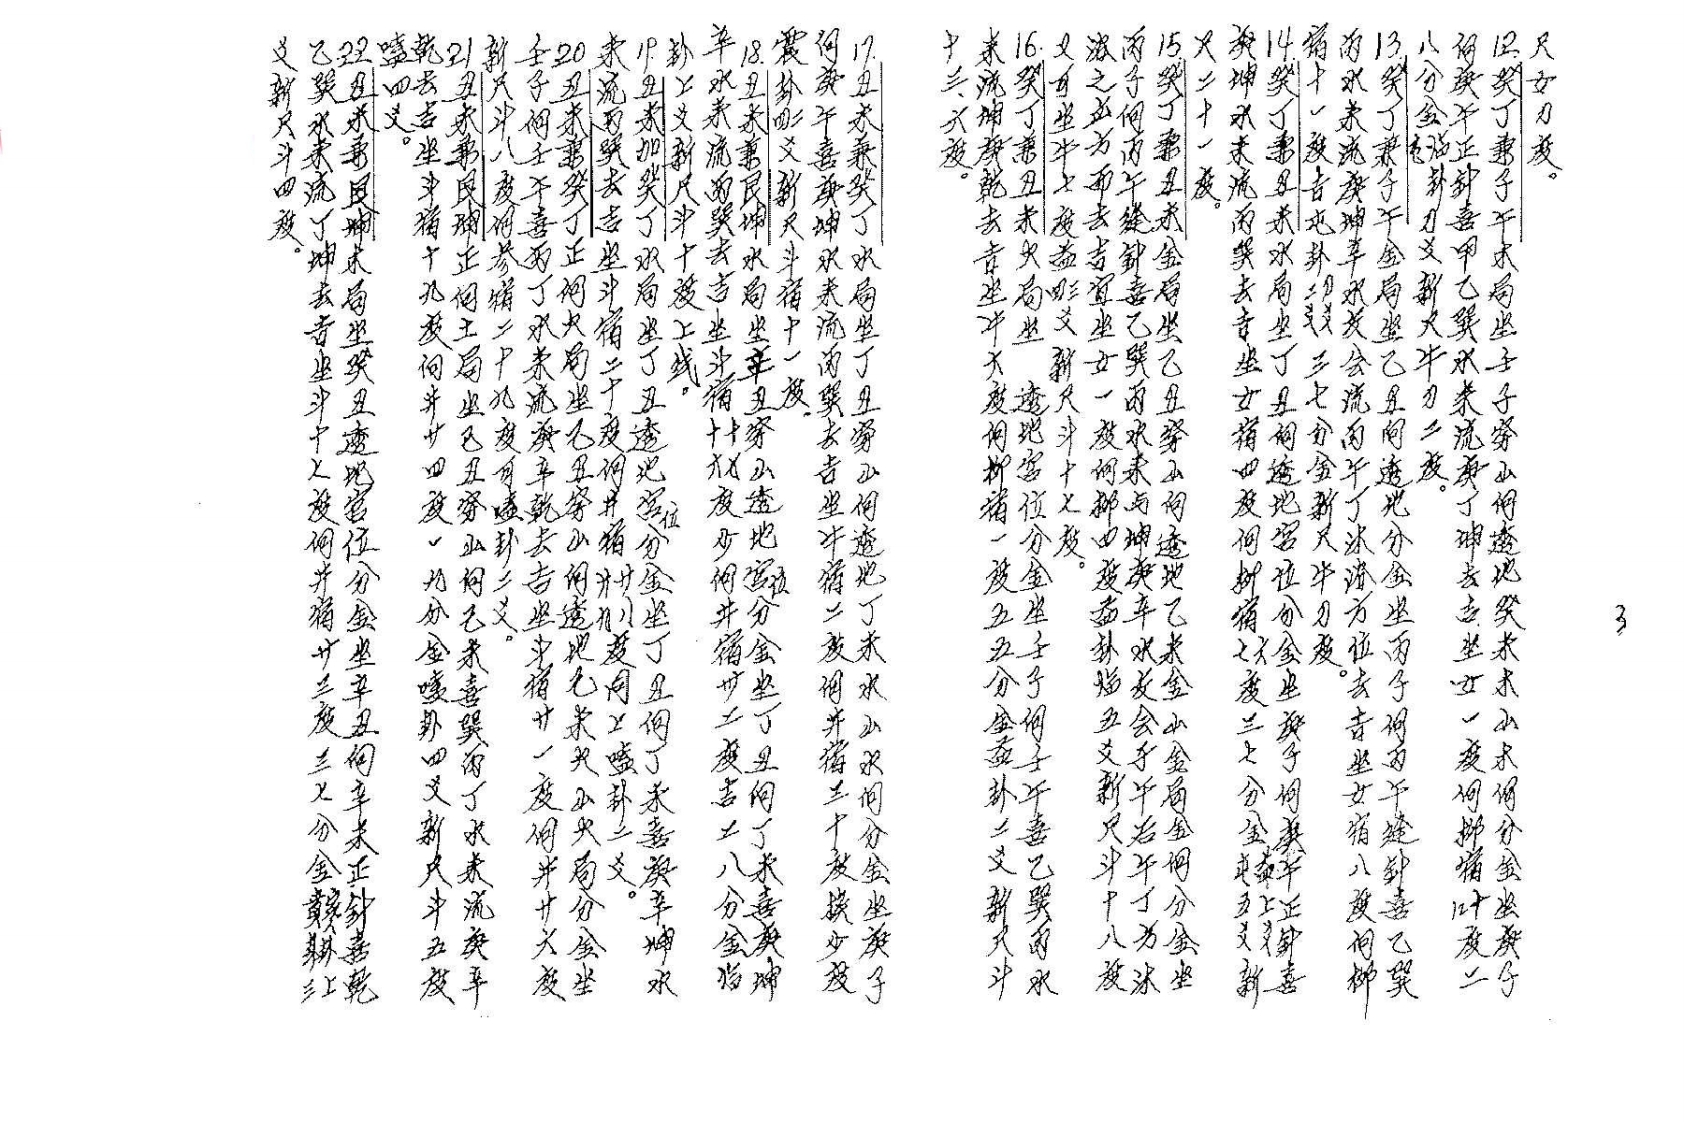 尺女刀度。
12.癸丁兼子午木局坐壬子穿山何透地癸未木山木何分金坐庚子
何庚午正針喜甲乙巽水来流庚丁坤去吉坐女一度何柳宿叶度二
八分金临卦刀爻新尺牛刀二度。
13.癸丁兼子午金局坐乙丑向透地分金坐丙子何丙午缝針喜乙巽
丙水来流庚坤辛水交会流丙午丁沐浴方位去吉坐女宿八度何柳
宿十一度吉屯卦二爻三七分金新尺牛刀度。
14.癸丁兼丑未水局坐丁丑何透地宫位分金坐庚子何庚午正針喜
庚坤水未流丙巽去吉坐女宿四度何柳宿七度三七分金 五爻新
尺二十一度。
15.癸丁兼丑未金局坐乙丑穿山何透地乙未金山金局金何分金坐
丙子何丙午缝針喜乙巽丙水来与坤庚辛水交会子午右午丁方沐
浴之丑方而去吉宜坐女一度何柳四度益卦临五爻新尺斗十八度
又有坐牛七度益四三爻新尺斗十七度。
16.癸丁兼丑未火局坐 透地宫位分金坐壬子何壬午喜乙巽丙水
来流坤庚乾去吉坐牛六度何柳宿一度五五分金益卦二爻新尺斗
十三、六度。
17.丑未兼癸丁水局坐丁丑穿山何透地丁未水山水何分金坐庚子
何庚午喜庚坤水来流丙巽去吉坐牛宿二度何井宿三十度换少度
震卦四三爻新尺斗宿十一度。
18.丑未兼艮坤水局坐辛丑穿山透地宫位分金坐丁丑何丁未喜庚坤
辛水来流丙巽去吉坐斗宿 度少何井宿廿二度吉二八分金临
卦上爻新尺斗十度上线。
19.丑未加癸丁水局坐丁丑透地宫位分金坐丁丑何丁未喜庚辛坤水
来流丙巽去吉坐斗宿二十度何井宿 度同上嗑卦二爻。
20.丑未兼癸丁正何火局坐乙丑穿山何透地乙未火山火局分金坐
壬子何壬午喜丙丁水来流庚辛乾去吉坐斗宿廿一度何井廿六度
新尺斗八度何参宿二十九度有嗑卦二爻。
21.丑未兼艮坤正何土局坐乙丑穿山何乙未喜巽丙丁水来流庚辛
乾去吉坐斗宿十九度何井廿四度一九分金嗑卦四爻新尺斗五度
嗑四爻。
22.丑未兼艮坤木局坐癸丑透地宫位分金坐辛丑何辛未正針喜乾
乙巽水来流丁坤去吉坐斗十七度何井宿廿三度三七分金 三上
爻新尺斗四度。
3